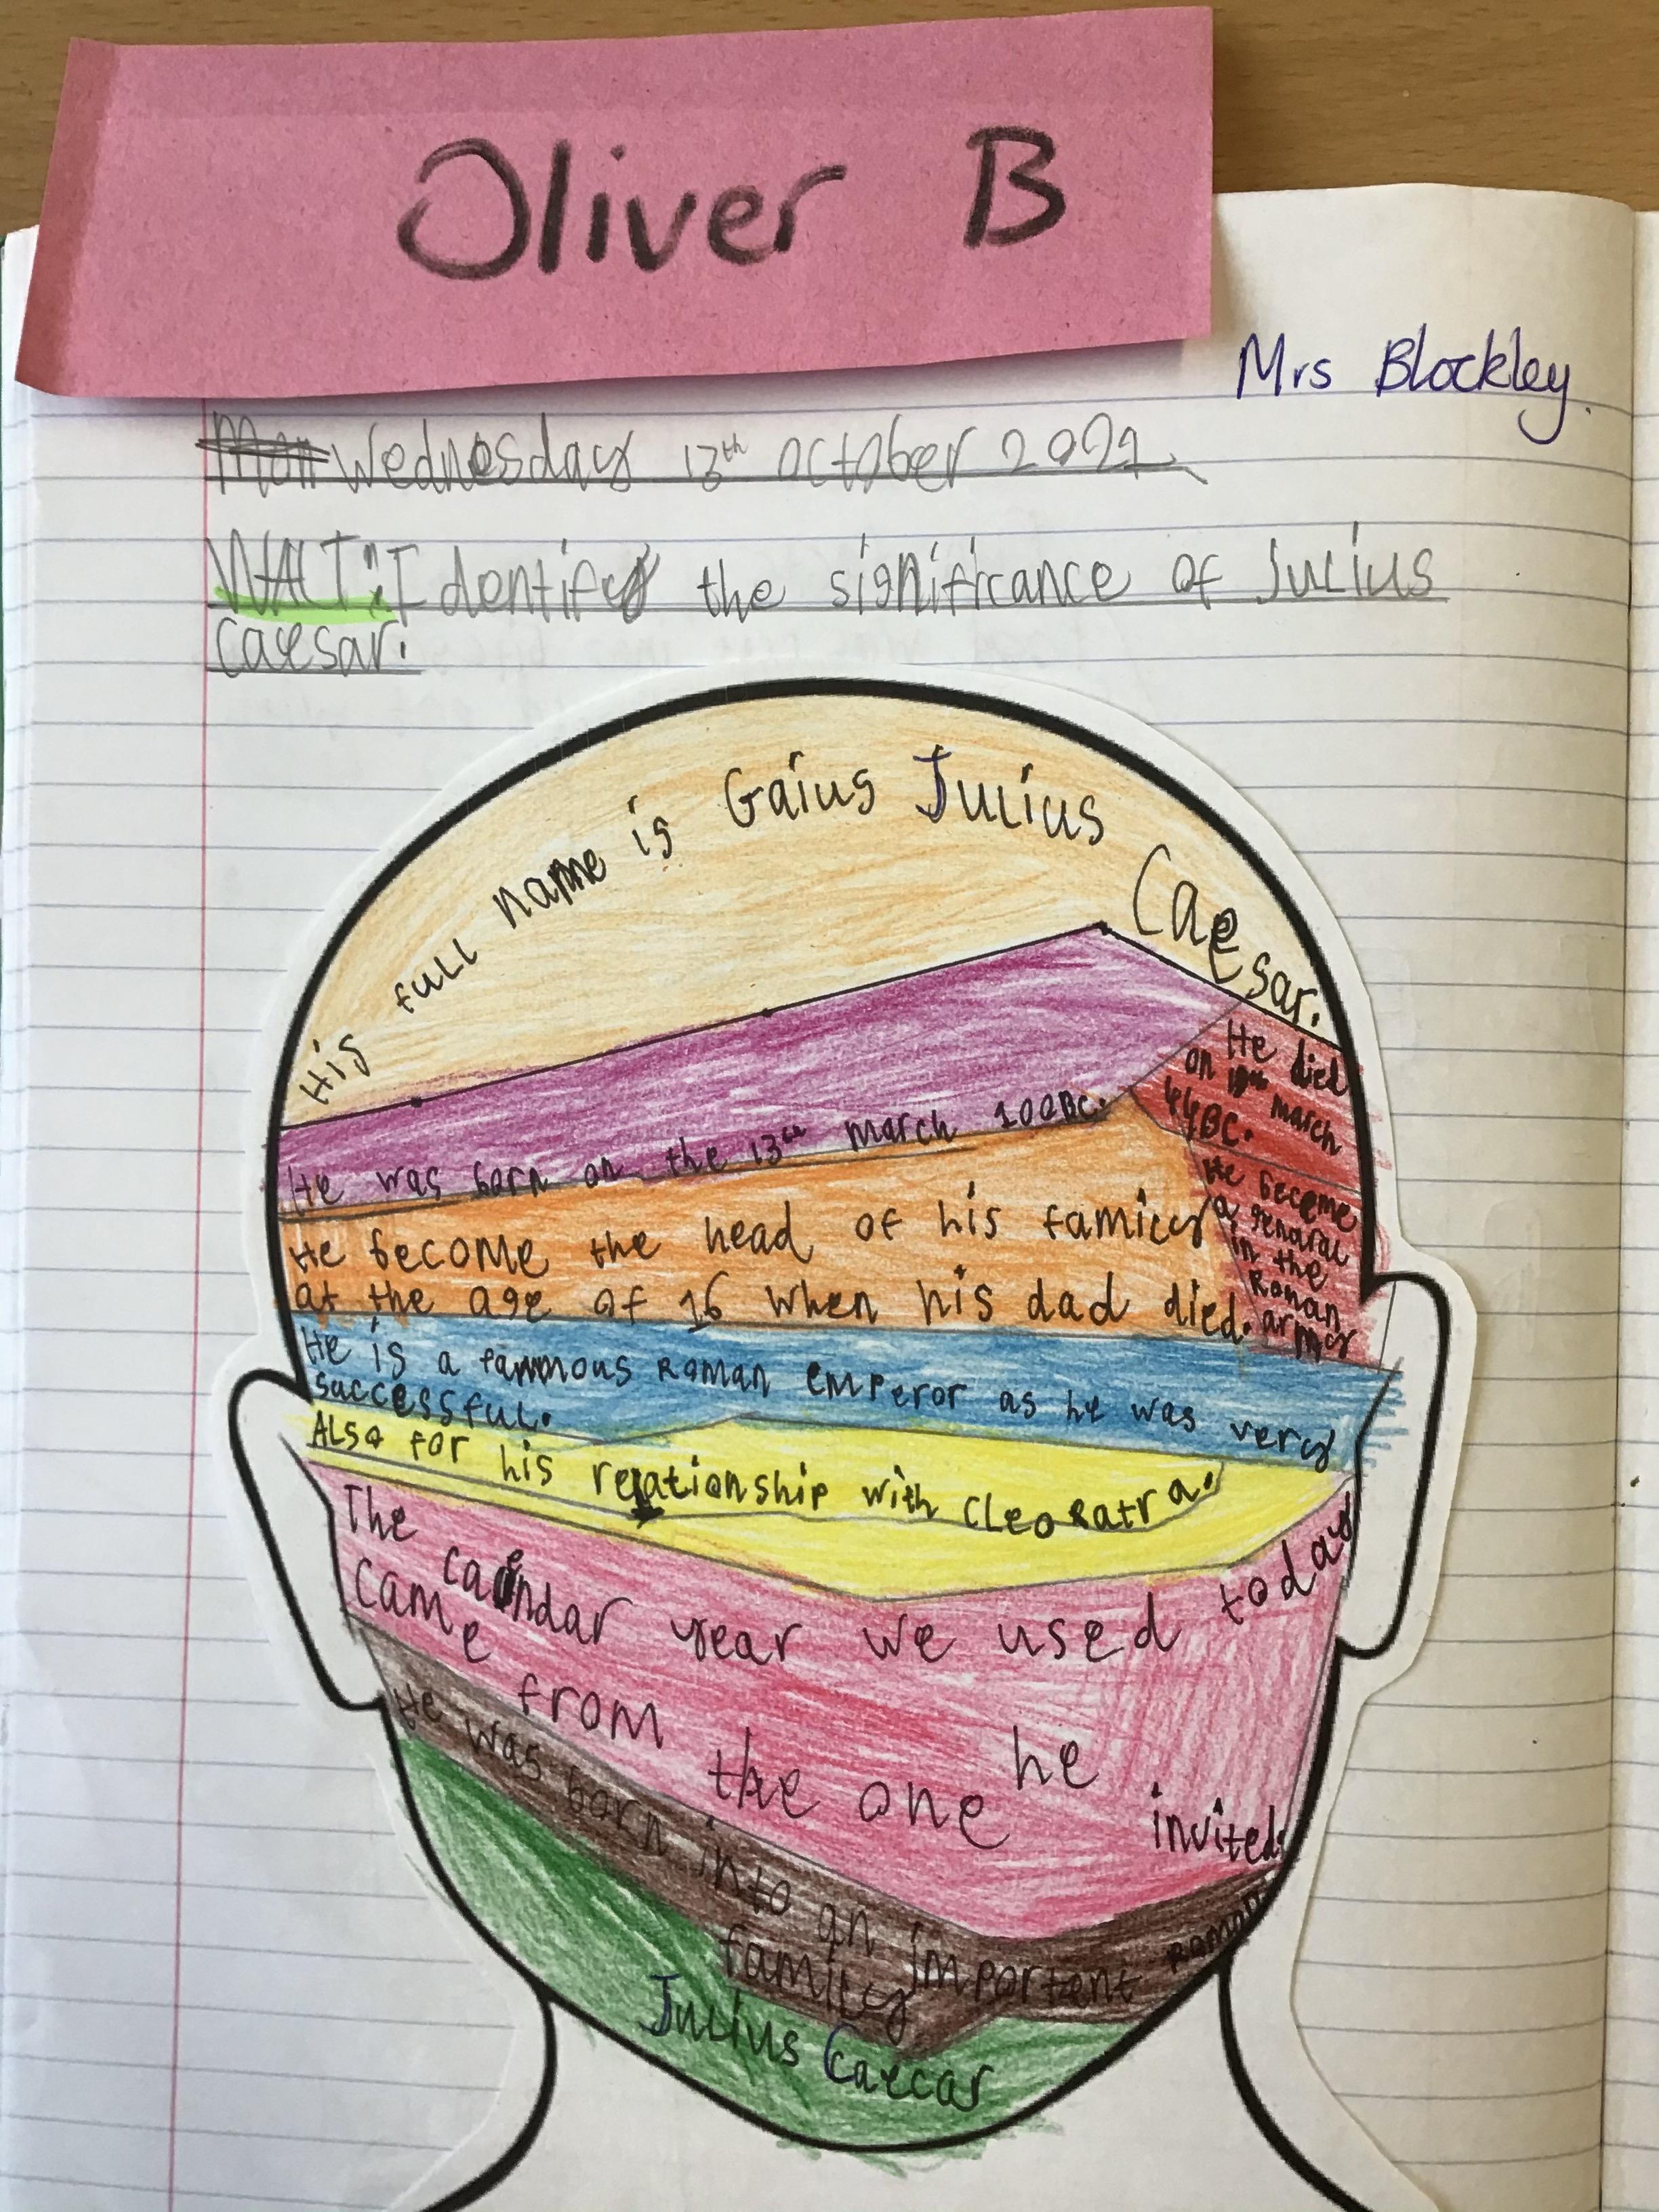 Oliver B
Mrs Blockley.
Mon Wednesday 13th october 2021
WALT: Identify the significance of Julius
caesar.
His full name is Gaius Julius Caesar.
He was born on the 13th march 100BC.
He died
on march
44BC.
He become the head of his family
at the age of 16 when his dad died.
He become
a genaral
in the
Roman
army
He is a fammous Roman emperor as he was very
successful.
Also for his relationship with Cleopatra.
The calendar year we used today
came from the one he invited.
He was born into an important Roman
family
Julius Caecar